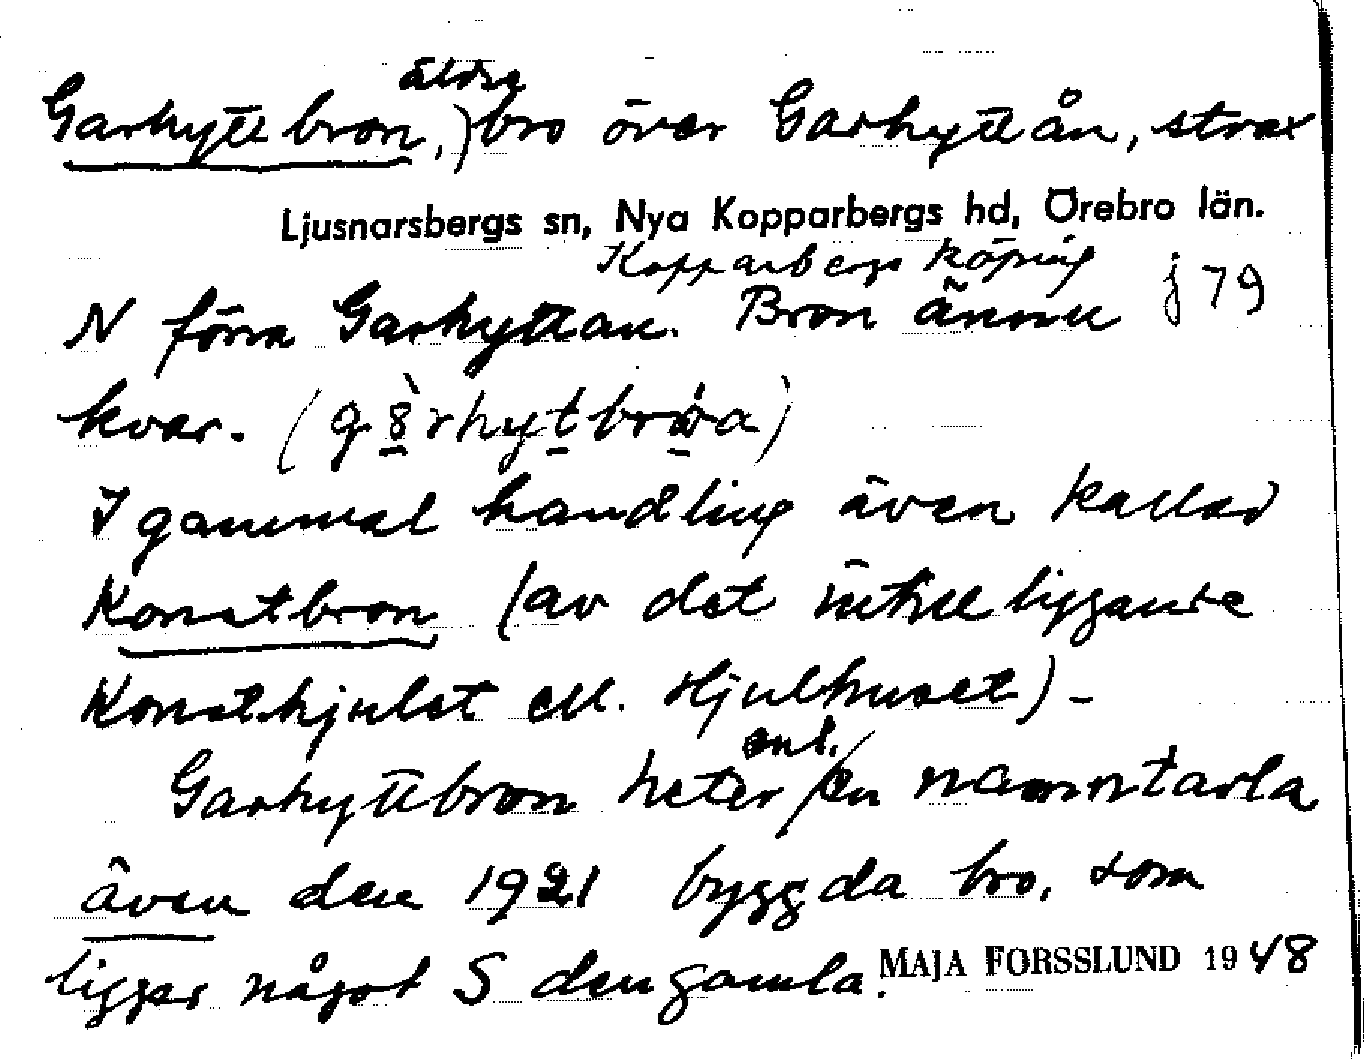 Garhyttebron, äldre bro över Garhytteån, strax
Ljusnarsbergs sn, Nya Kopparbergs hd, Örebro län.
Kopparbergs köping j 79
N förra Garhyttan. Bron ännu
kvar.
I gammal handling även kallad
Konstbron (av det intill liggande
Konsthjulet ell. Hjulhuset) -
Garhyttebron heter enl. en namntavla
även den 1921 byggda bro, som
ligger något S den gamla.
MAJA FORSSLUND 1948